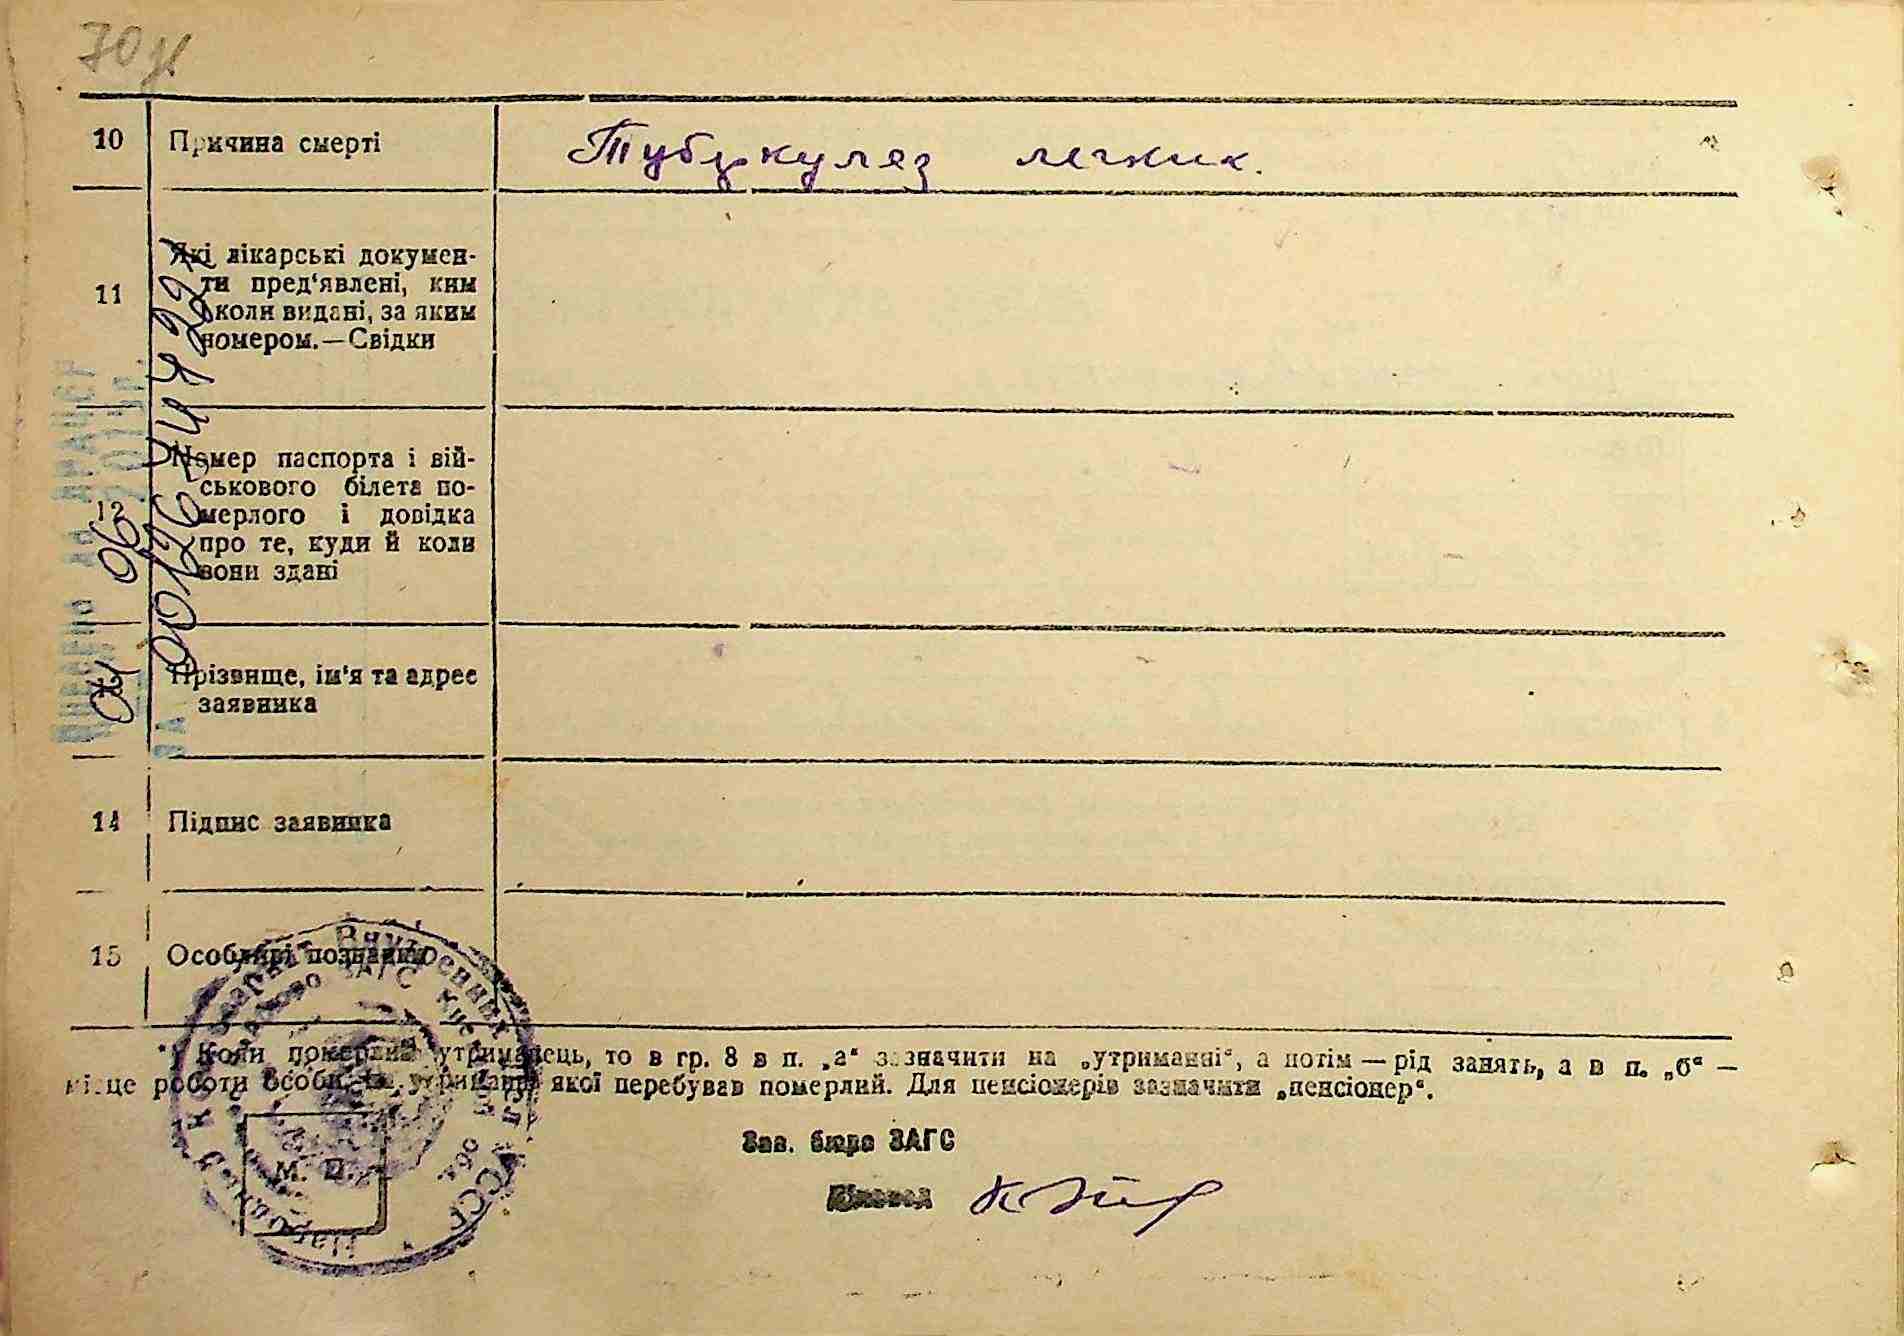 10 Причина смерті Тубуркулез легких.
11 Які лікарські докумен-
ти пред'явлені, ким
і коли видані, за яким
номером.—Свідки
12 Номер паспорта і вій-
ськового білета по-
мерлого і довідка
про те, куди й коли
вони здані
Прізвище, ім'я та адрес
заявника
14 Підпис заявника
15 Особливі познач
*) Коли померлий утриманець, то в гр. 8 в п. „а“ зазначити на „утриманні“, а потім — рід занять, а в п. „б“ —
місце роботи особи, на утриманні якої перебував померлий. Для пенсіонерів зазначити „пенсіонер“.
Зав. бюро ЗАГС
М. П.